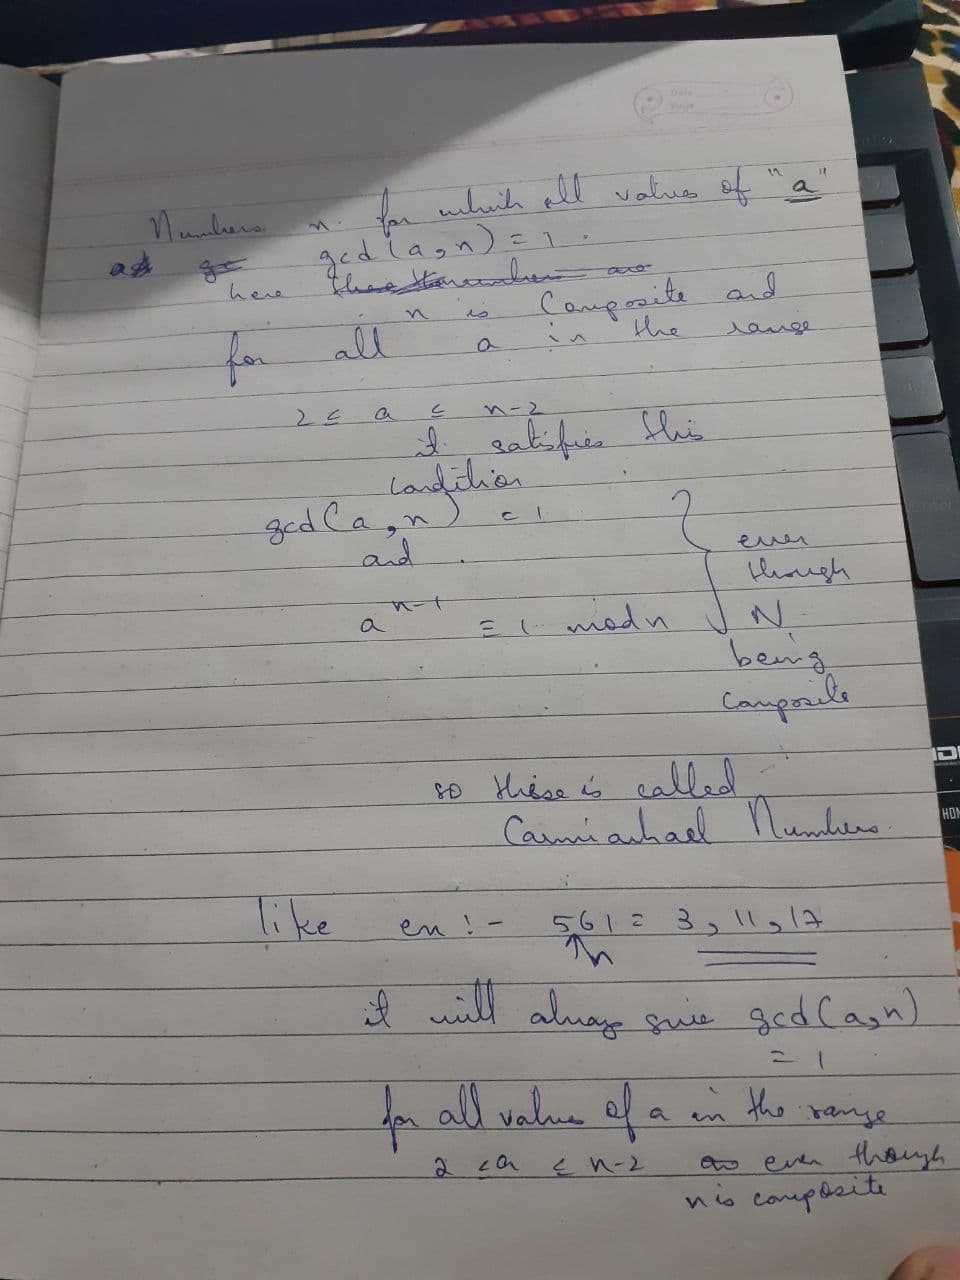 Date
Page
Numbers n. for which all values of "a"
gcd(a,n) = 1.
here
n is Composite and
for all a in the range
2 ≤ a ≤ n-2
it satisfies this
condition
gcd(a,n) = 1
and
a^n-1 ≡ 1 modn
even
though
N
being
composite
so these is called
Carmichael Numbers.
like en:- 561 = 3, 11, 17
n
it will always give gcd(a,n)
= 1
for all values of a in the range
2 ≤ a ≤ n-2 even though
n is composite